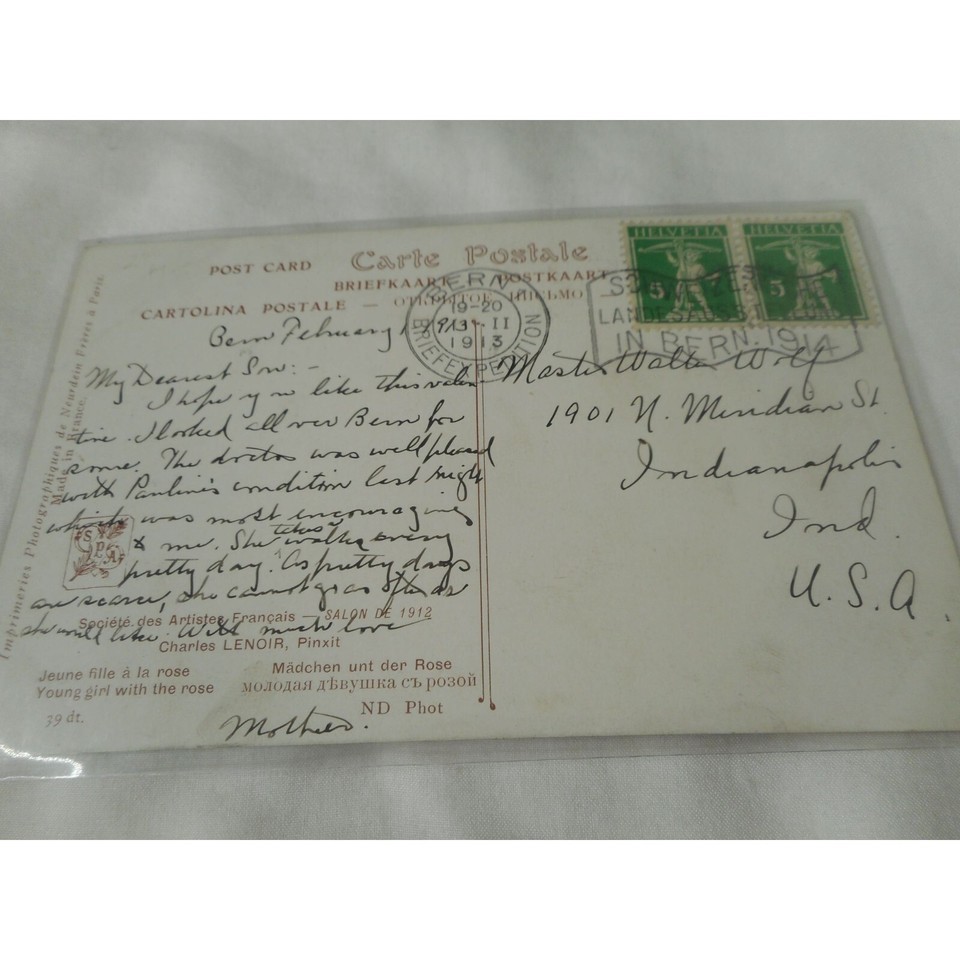 POST CARD Carte Postale
BRIEFKAART POSTKAART
CARTOLINA POSTALE — ОТКРЫТОЕ ПИСЬМО
HELVETIA HELVETIA
5 5
BERN
19-20
II
1913
BRIEFEXPEDITION
LANDESAUSST
IN BERN. 1914
Bern February 1913
My Dearest Son:-
I hope you like this valen
tine. I looked all over Bern for
some. The doctor was well pleased
with Pauline's condition last night
which was most encouraging
to me. She takes walks every
pretty day. As pretty days
are scarce, she cannot go as often as
she would like. With much love
Mother.
Master Walter Wolf
1901 N. Meridian St.
Indianapolis
Ind.
U.S.A.
SPA
Société des Artistes Français — SALON DE 1912
Charles LENOIR, Pinxit
Jeune fille à la rose Mädchen unt der Rose
Young girl with the rose молодая дѣвушка съ розой
39 dt. ND Phot
Imprimeries Photographiques de Neurdein Frères à Paris.
Made in France.